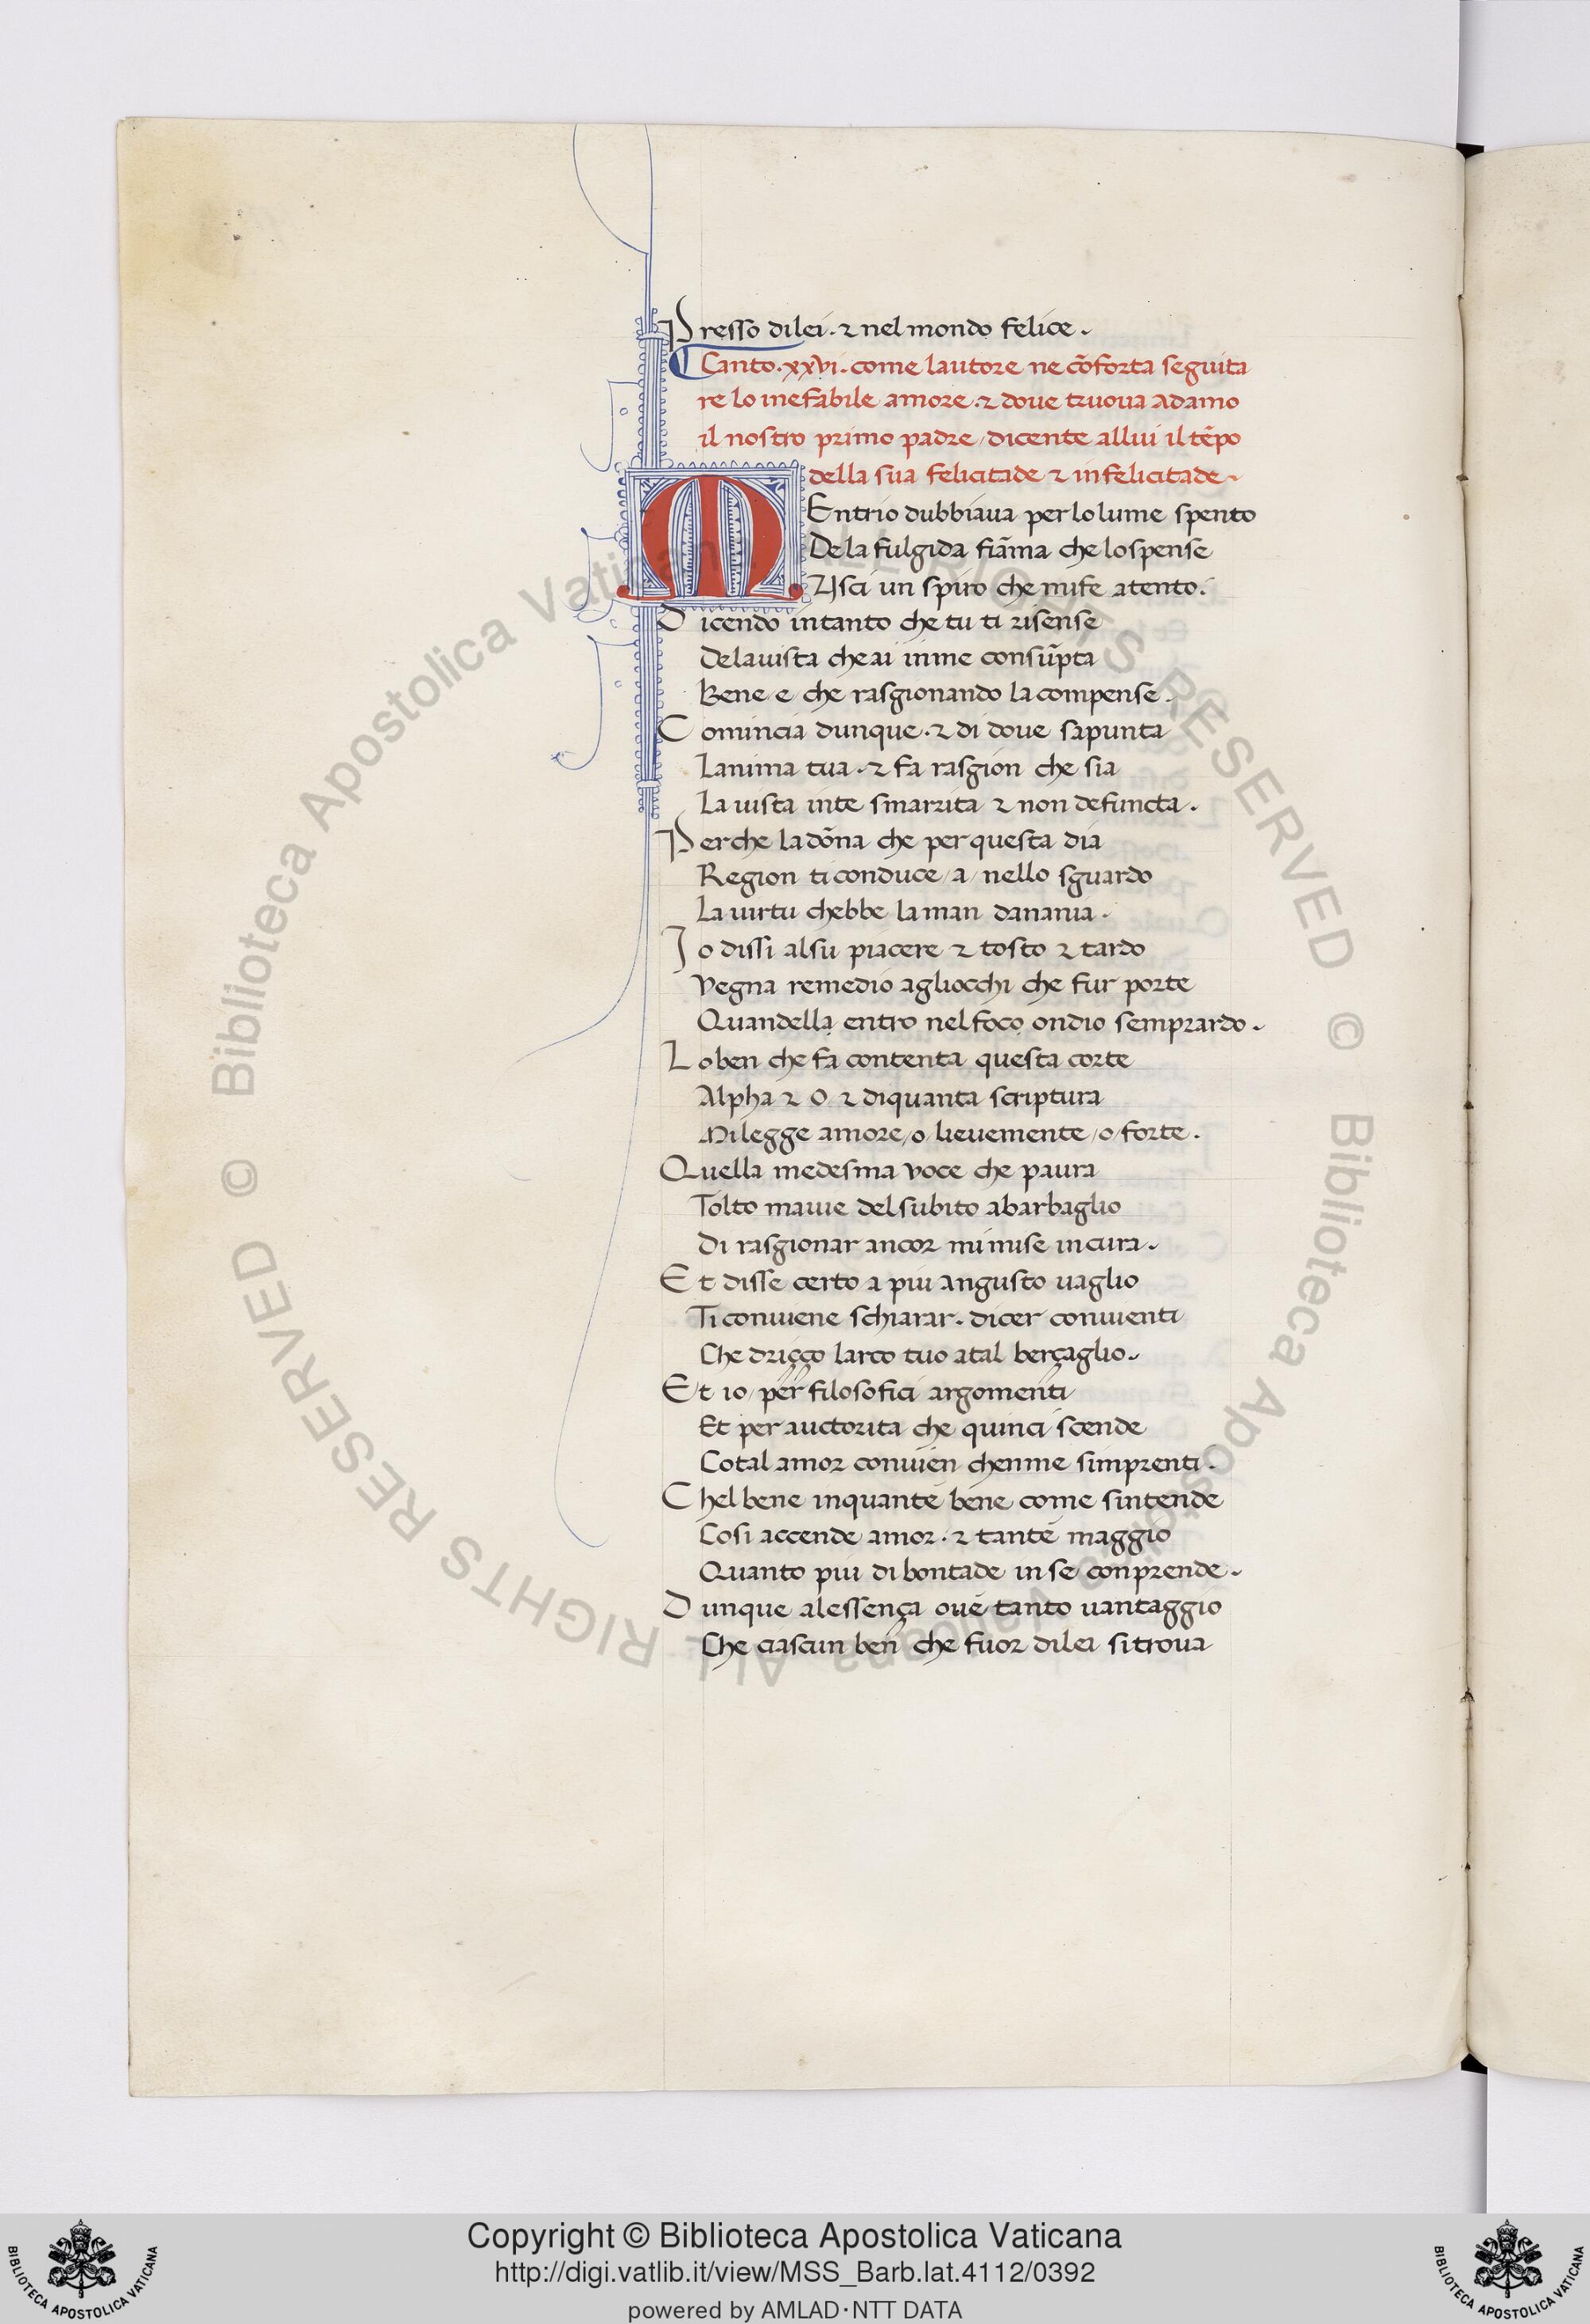 Presso dilei. & nel mondo felice.
Canto. xxvi. come lautore ne cōforta seguita
re lo inefabile amore. & dove truova adamo
il nostro primo padre / dicente allui il tēpo
della sua felicitade & infelicitade.
MEntrio dubbiava perlolume spento
De la fulgida fiāma che lospense
Usci un spiro che mife atento.
Dicendo intanto che tu ti risense
Delavista che ai inme consūpta
Bene / e / che rasgionando la compense.
Comincia dunque. & di dove sapunta
Lanima tua. & fa rasgion che sia
La vista inte smarrita & non defuncta.
Perche la dōna che per questa dia
Region ti conduce / a / nello sguardo
La virtu chebbe la man danania.
Io dissi alsu piacere & tosto & tardo
Vegna remedio agliocchi che fur porte
Quandella entro nel foco ondio semprardo.
Lo ben che fa contenta questa corte
Alpha & O & diquanta scriptura
Milegge amore / o / lievemente / o / forte.
Quella medesma voce che paura
Tolto mavie del subito abarbaglio
Di rasgionar ancor mi mise incura.
Et disse certo a piu angusto vaglio
Ti conviene schiarar. dicer convienti
Che driçço larco tuo atal berçaglio.
Et io / per filosofici argomenti
Et per auctorita che quinci scende
Cotal amor convien chenme simprenti.
Chel bene inquante bene come sintende
Cosi accende amor. & tante maggio
Quanto piu di bontade in se conprende.
Dunque alessença ove tanto vantaggio
Che ciascun ben che fuor dilei sitrova
© Biblioteca Apostolica Vaticana ALL RIGHTS RESERVED © Biblioteca Apostolica Vaticana ALL RIGHTS RESERVED
Copyright © Biblioteca Apostolica Vaticana
http://digi.vatlib.it/view/MSS_Barb.lat.4112/0392
powered by AMLAD·NTT DATA
BIBLIOTECA APOSTOLICA VATICANA
BIBLIOTECA APOSTOLICA VATICANA